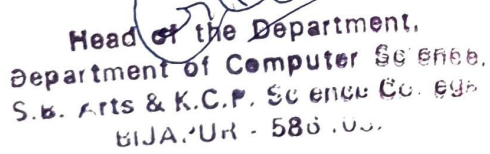 Head of the Department,
Department of Computer Science,
S.B. Arts & K.C.P. Science College
BIJAPUR - 586